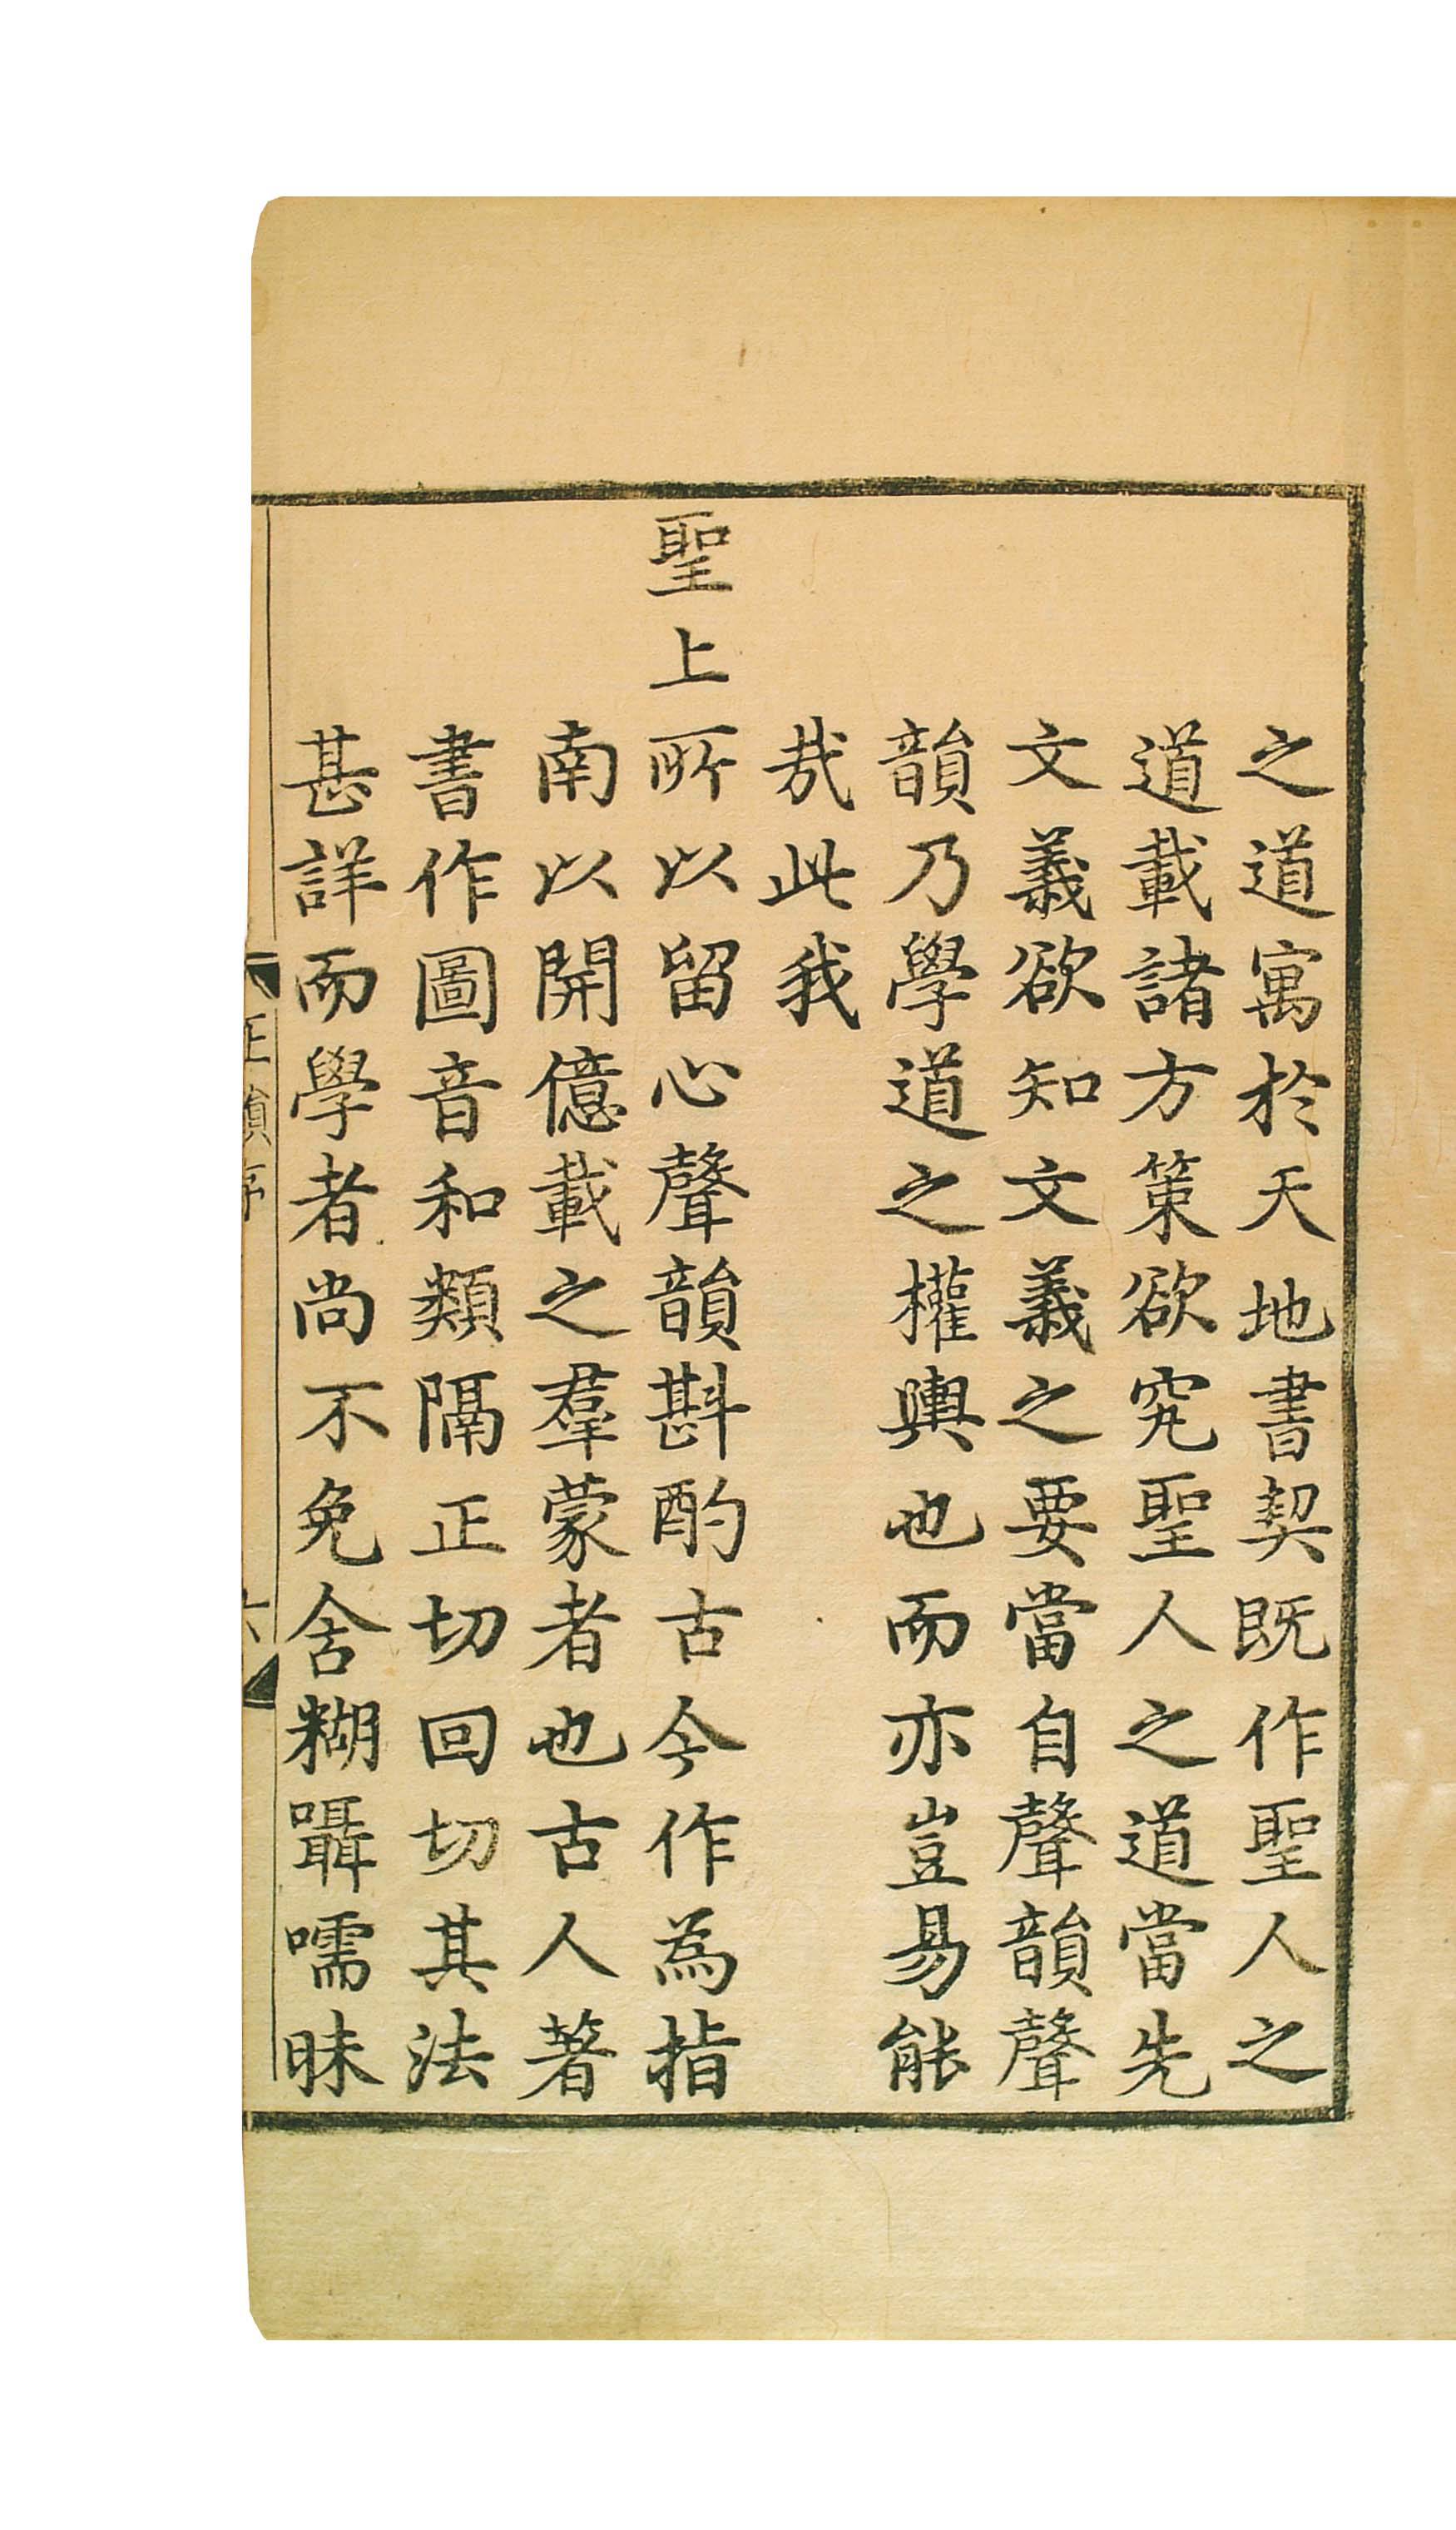 之道寓於天地書契既作聖人之
道載諸方策欲究聖人之道當先
文義欲知文義之要當自聲韻聲
韻乃學道之權輿也而亦豈易能
哉此我
聖上所以留心聲韻斟酌古今作為指
南以開億載之羣蒙者也古人著
書作圖音和類隔正切回切其法
甚詳而學者尚不免含糊囁嚅昧
正韻序
六